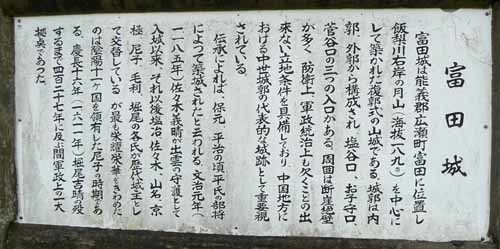 富田城
富田城は能義郡広瀬町富田に位置し
飯梨川右岸の月山（海抜一八九m）を中心に
して築かれた複郭式の山城である。城郭は内
郭、外郭から構成され、塩谷口、お子守口、
菅谷口の三つの入口がある。周囲は断崖絶壁
が多く、防衛上、軍政統治上も欠くことの出
来ない立地条件を具備しており、中国地方に
おける中世城郭の代表的な城跡として重要視
されている。
伝承によれば、保元、平治の頃平氏の部将
によって築城されたと云われる。文治元年（
一一八五年）佐々木義晴が出雲の守護として
入城以来、それ以後塩冶、佐々木、山名、京
極、尼子、毛利、堀尾の各氏が歴代城主とし
て交替しているが最も栄耀栄華をきわめた
のは陰陽十一ヶ国を領有した尼子の時期であ
る。慶長十六年（一六一一年）堀尾吉晴の歿
するまで四百二十七年に及ぶ間軍政上の一大
拠点であった。